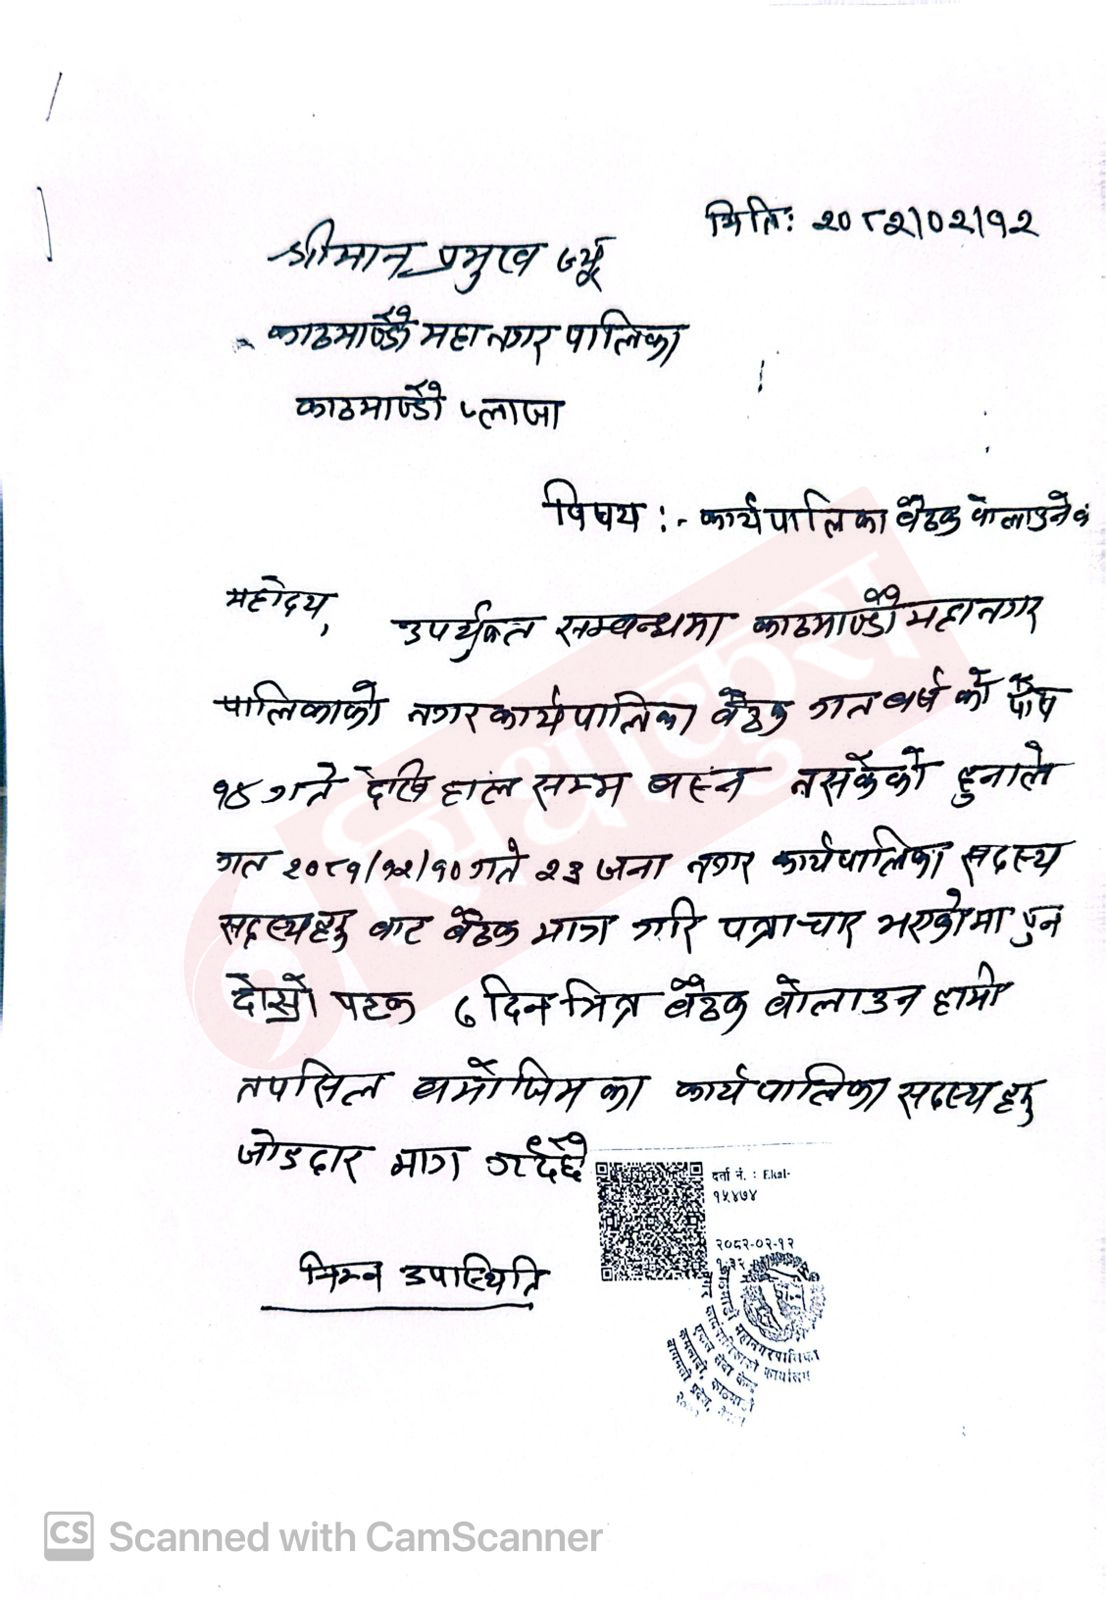 मिति: २०८२/०२/१२
श्रीमान प्रमुख ज्यू
काठमाण्डौ महानगरपालिका
काठमाण्डौ प्लाजा
विषय :- कार्यपालिका बैठक बोलाउने
महोदय,
उपर्युक्त सम्बन्धमा काठमाण्डौ महानगर
पालिकाको नगरकार्यपालिका बैठक गत वर्ष को पौष
गते देखि हाल सम्म बस्न नसकेको हुनाले
गत २०८१/१२/१० गते २३ जना नगर कार्यपालिका सदस्य
सदस्यहरु बाट बैठक माग गरि पत्राचार भएकोमा पुन
दोस्रो पटक ७ दिन भित्र बैठक बोलाउन हामी
तपसिल बमोजिमका कार्यपालिका सदस्यहरु
जोडदार माग गर्दछौ
दर्ता नं. : Ekal-
१५४७४
२०८२-०२-१२
निम्न उपास्थिति
काठमाडौं महानगरपालिका
नगर कार्यपालिकाको कार्यालय
एकल सेवा केन्द्र
कमलादी, काठमाडौं
बागमती प्रदेश, नेपाल
सिधाकुरा
CS Scanned with CamScanner